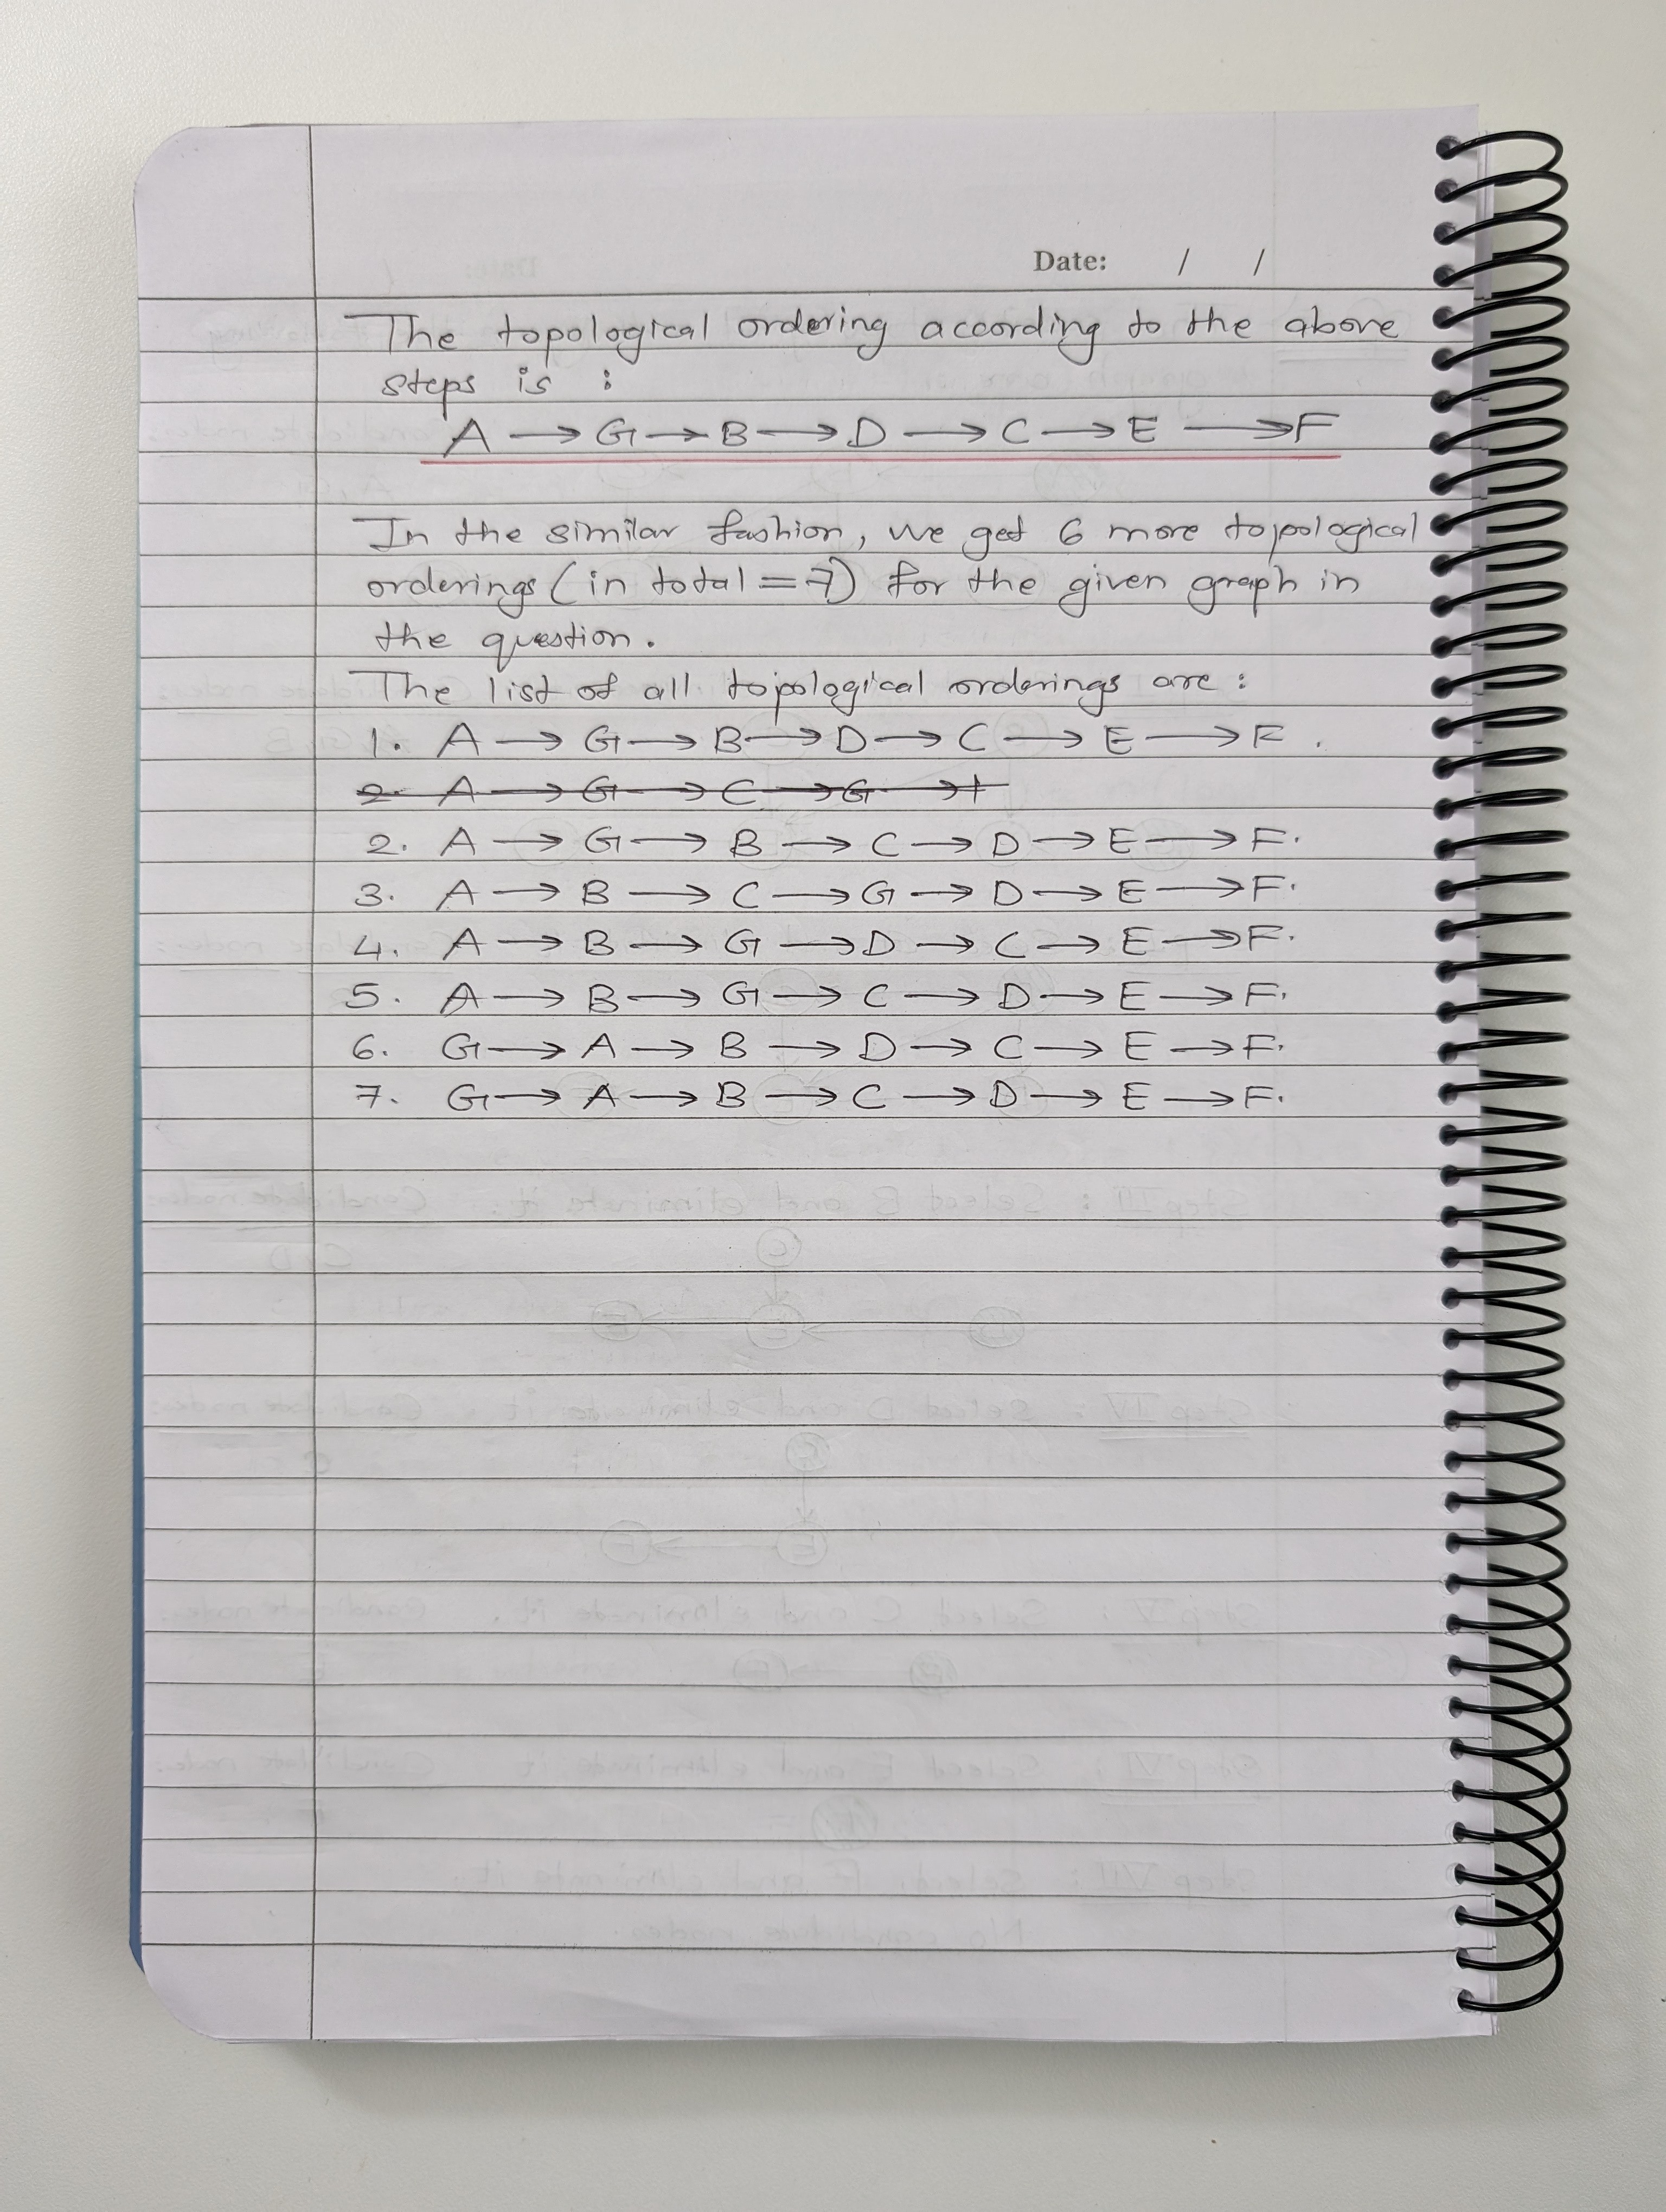 Date: / /
The topological ordering according to the above
steps is :
A → G → B → D → C → E → F
In the similar fashion, we get 6 more topological
orderings (in total = 7) for the given graph in
the question.
The list of all topological orderings are :
1. A → G → B → D → C → E → F .
2. A → G → C → G →
2. A → G → B → C → D → E → F.
3. A → B → C → G → D → E → F.
4. A → B → G → D → C → E → F.
5. A → B → G → C → D → E → F.
6. G → A → B → D → C → E → F.
7. G → A → B → C → D → E → F.